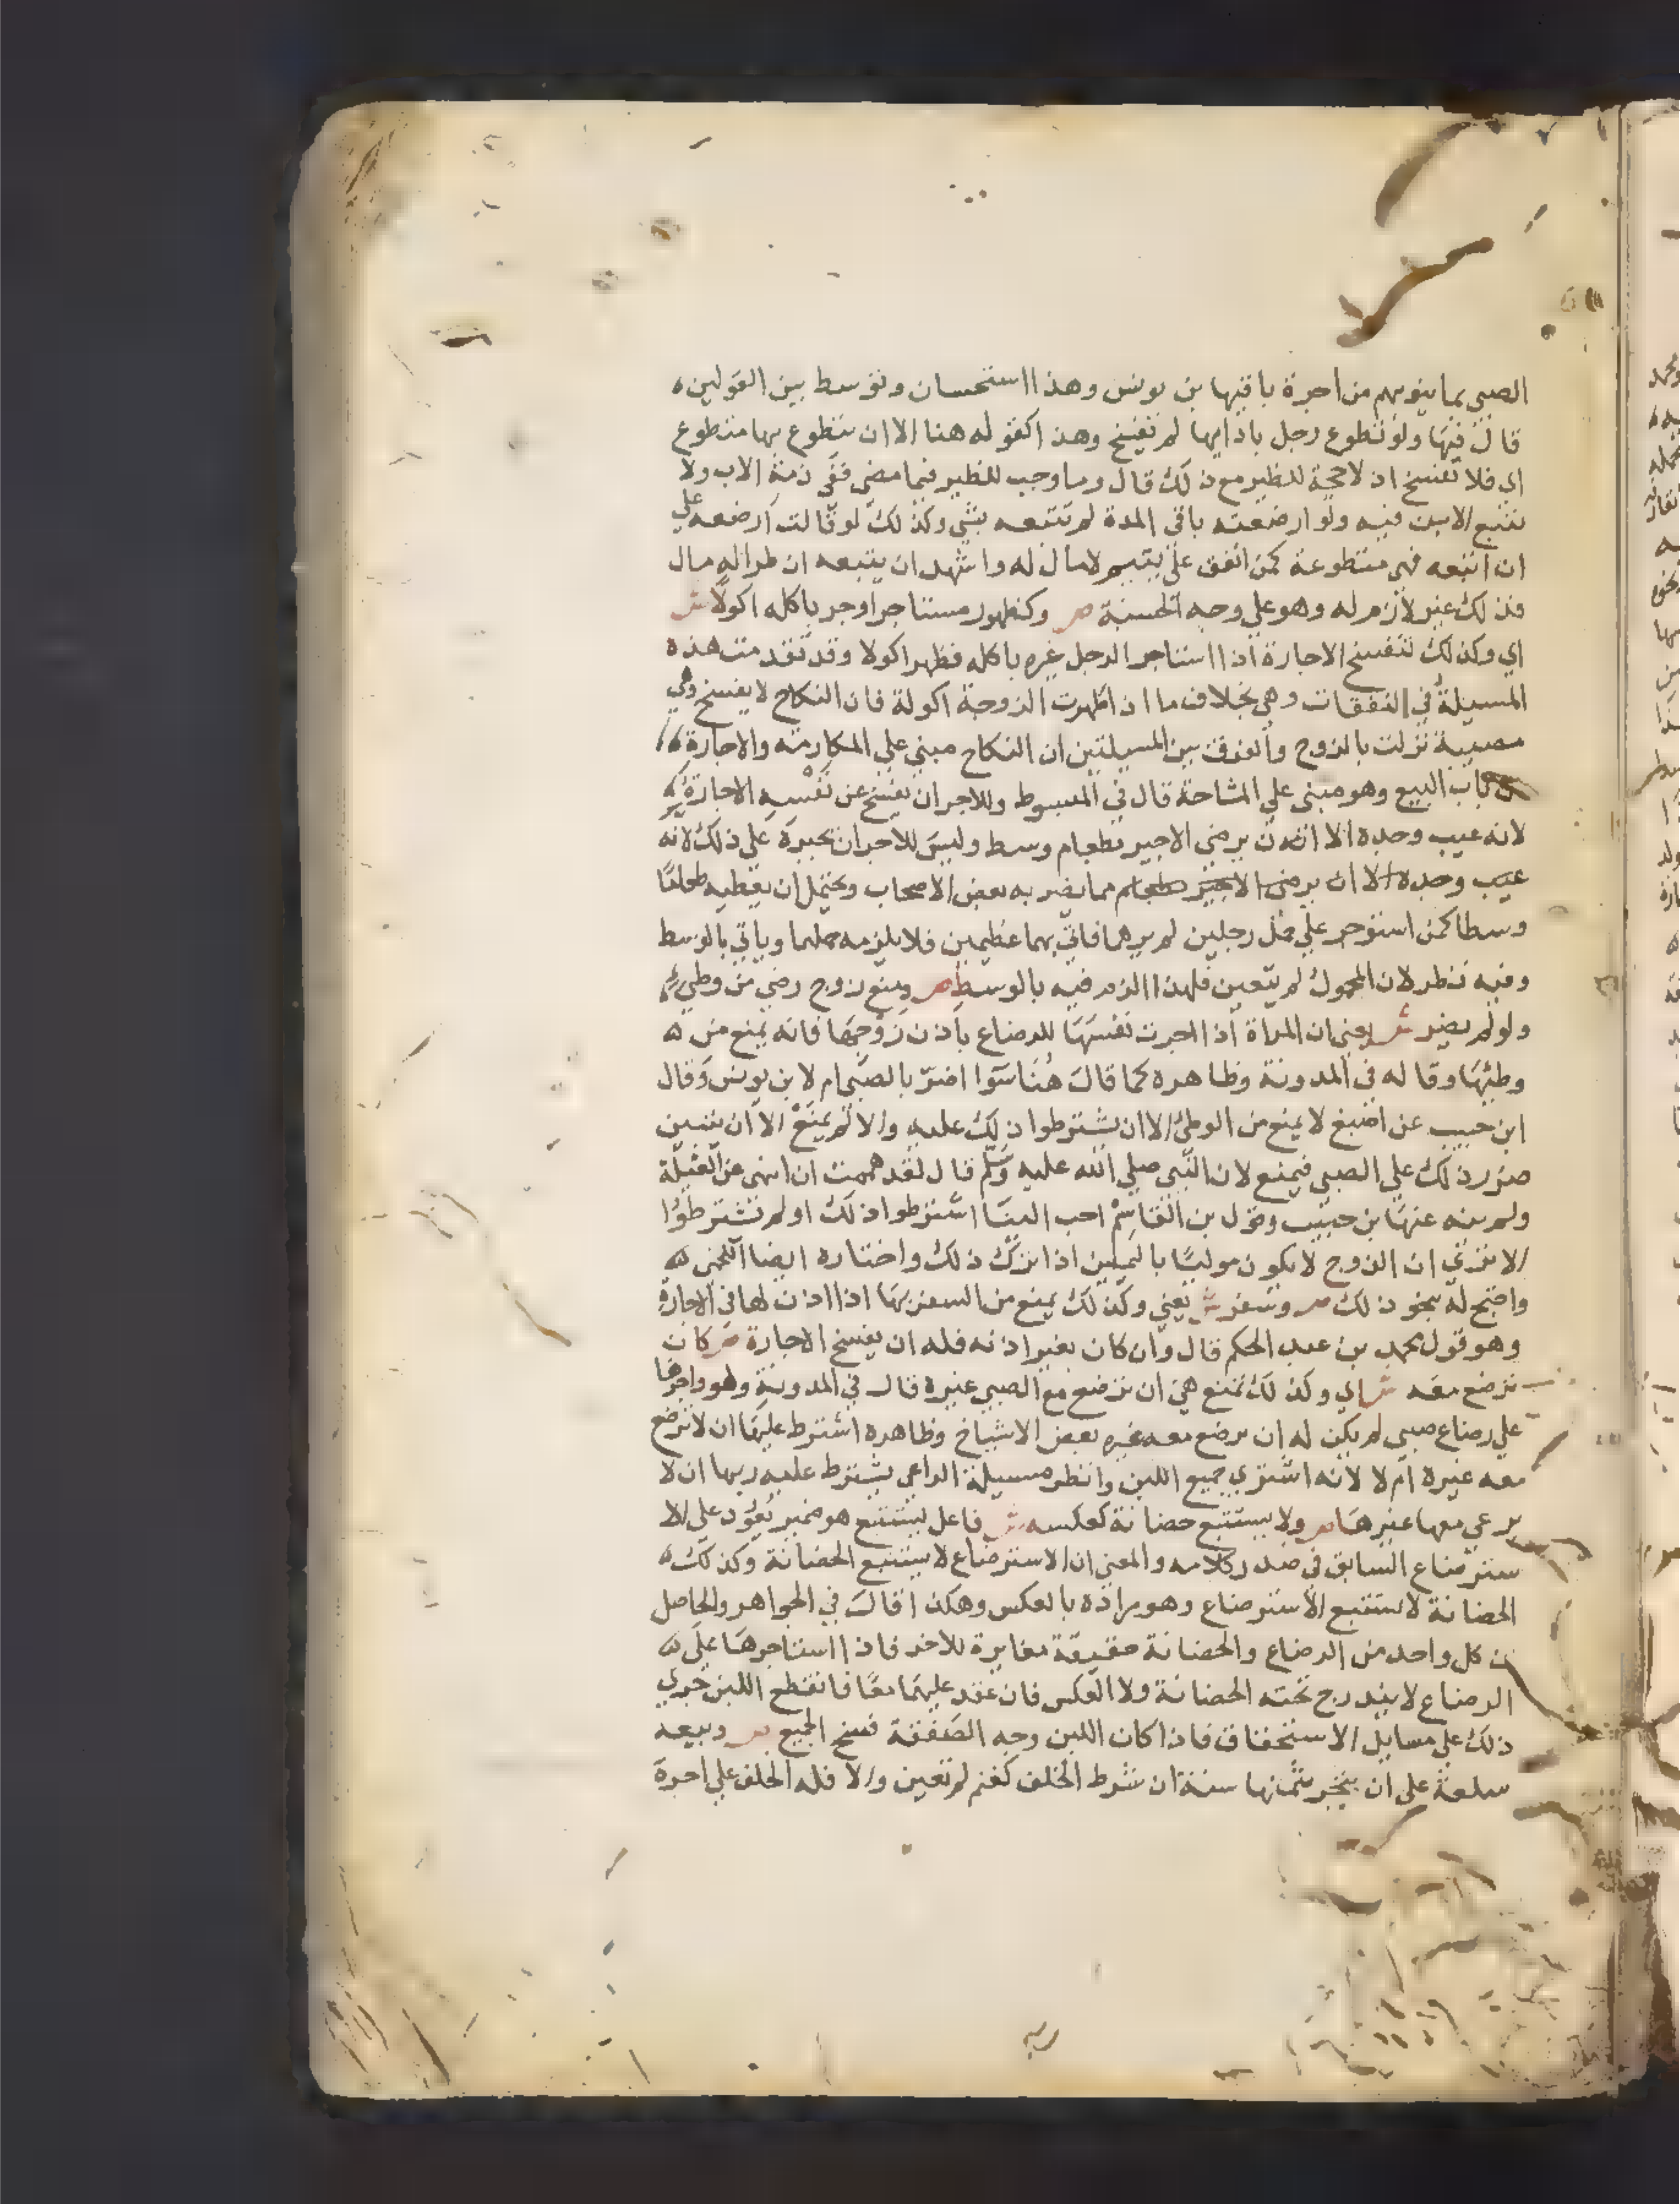 الصبي بما ينوبهم من اجرة باقيها بن يونس وهذا استحسان وتوسط بين القولين
قال فيها ولو تطوع رجل بادايها لم تفسخ وهذا كقوله هنا الا ان يتطوع بها متطوع
اي فلا تفسخ اذ لا حجة للظير مع ذلك قال وما وجب للظير فيما مضى ففي ذمة الاب ولا
تتبع الابن فيه ولو ارضعته باقي المدة لم تتبعه بشي وكذلك لو قالت ارضعه علي
ان اتبعه فهي متطوعة كمن انفق على يتيم لا مال له واشهد ان يتبعه ان طرا له مال
فذلك غير لازم له وهو علي وجه الحسبة ص وكظهور مستاجر اوجر باكله اكولا ش
اي وكذلك تنفسخ الاجارة اذا استاجر الرجل غيره باكله فظهر اكولا وقد تقدمت هذه
المسيلة في النفقات وهي بخلاف ما اذا ظهرت الزوجة اكولة فان النكاح لا يفسخ وهي
مصيبة نزلت بالزوج والفرق بين المسيلتين ان النكاح مبني علي المكارمة والاجارة
باب البيع وهو مبني علي المشاحة قال في المبسوط وللاجر ان يفسخ عن نفسه الاجارة
لانه عيب وحده الا ان يرضى الاجير بطعام وسط وليس للاجر ان يجبره علي ذلك لانه
عيب وحده الا ان يرضى الاجير بطعام مما يضر به بعض الاصحاب ويحتمل ان يعطيه طعاما
وسطا كمن استوجر علي حمل رجلين لم يرهما فاتي بهما عظيمين فلا يلزمه حملهما وياتي بالوسط
وفيه نظر لان المحمول لم يتعين فلهذا الزم فيه بالوسط ص ومنع زوج رضي من وطي
ولو لم يضر ش يعني ان المراة اذا اجرت نفسها للرضاع باذن زوجها فانه يمنع من
وطئها وقاله في المدونة وظاهره كما قال هنا سوا اضر بالصبي ام لا بن يونس وقال
ابن حبيب عن اصبغ لا يمنع من الوطئ الا ان يشترطوا ذلك عليه والا لم يمنع الا ان يتبين
ضرر ذلك علي الصبي فيمنع لان النبي صلي الله عليه وسلم قال لقد هممت ان انهى عن الغيلة
ولم ينه عنها بن حبيب وقول بن القاسم احب الينا اشترطوا ذلك او لم تشترطوا
الا تري ان الزوج لا يكون موليا باليمين اذا ترك ذلك واختاره ايضا اللخمي
واحتج له بنحو ذلك ص وسفر ش يعني وكذلك يمنع من السفر بها اذا اذن لها في الاجارة
وهو قول محمد بن عبد الحكم قال وان كان بغير اذنه فله ان يفسخ الاجارة ص كان
ترضع معه ش اي وكذلك تمنع هي ان ترضع مع الصبي غيره قال في المدونة وهو واجرها
علي رضاع صبي لم يكن له ان يرضع معه غيره بعض الاشياخ وظاهره اشترط عليها ان لا ترضع
معه غيره ام لا لانه اشتري جميع اللبن وانظر مسيلة الراعي يشترط عليه ربها ان لا
يرعي معها غيرها ص ولا يستتبع حضانة كعكسه ش فاعل يستتبع هو ضمير يعود علي الا
سترضاع السابق في صدر كلامه والمعني ان الاسترضاع لا يستتبع الحضانة وكذلك
الحضانة لا تستتبع الاسترضاع وهو مراده بالعكس وهكذا قال في الجواهر والحاصل
ان كل واحد من الرضاع والحضانة حقيقة مغايرة للاخر فاذا استاجرها علي
الرضاع لا يندرج تحته الحضانة ولا العكس فان عقد عليهما معا فانقطع اللبن جري
ذلك علي مسايل الاستحقاق فاذا كان اللبن وجه الصفقة فسخ الجميع ص وبيعه
سلعة على ان يتجر بثمنها سنة ان شرط الخلف كغنم لم تعين والا فله الخلف علي اجرة